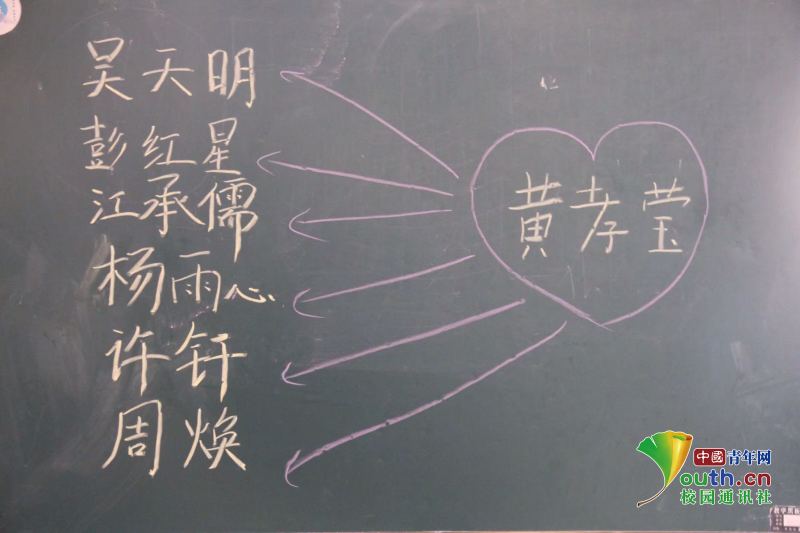 吴天明
彭红星
江承儒
杨雨心
许钎
周焕
黄孝莹
中國青年网
youth.cn
校园通讯社